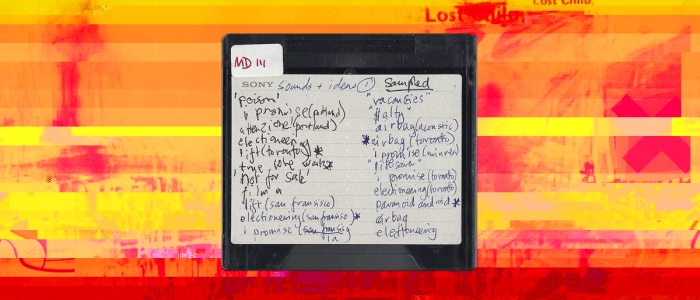 Lost Child
Lost Child.
MD 111
SONY sounds + ideas ① Sampled
'poison'
i promise (portland)
attenzione (portland)
electioneering
lift (toronto) *
true love waits *
'not for sale'
f. in a
lift (san fransisco)
electioneering (san fransisco) *
i promise (san fransisco
la)
"vacancies"
"Halty"
airbag (acoustic)
* airbag (toronto)
i promise (minnea
lifesaver
promise (toronto)
electioneering (toronto)
paranoid android *
airbag
electioneering